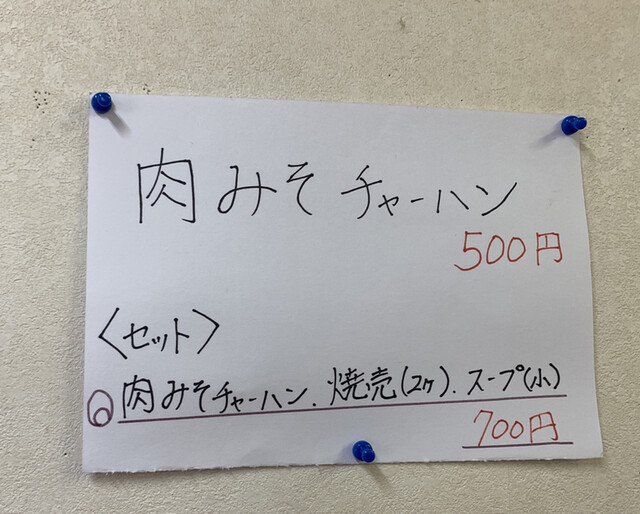 肉みそチャーハン
500円
〈セット〉
◎肉みそチャーハン.焼売(2ケ).スープ(小)
700円